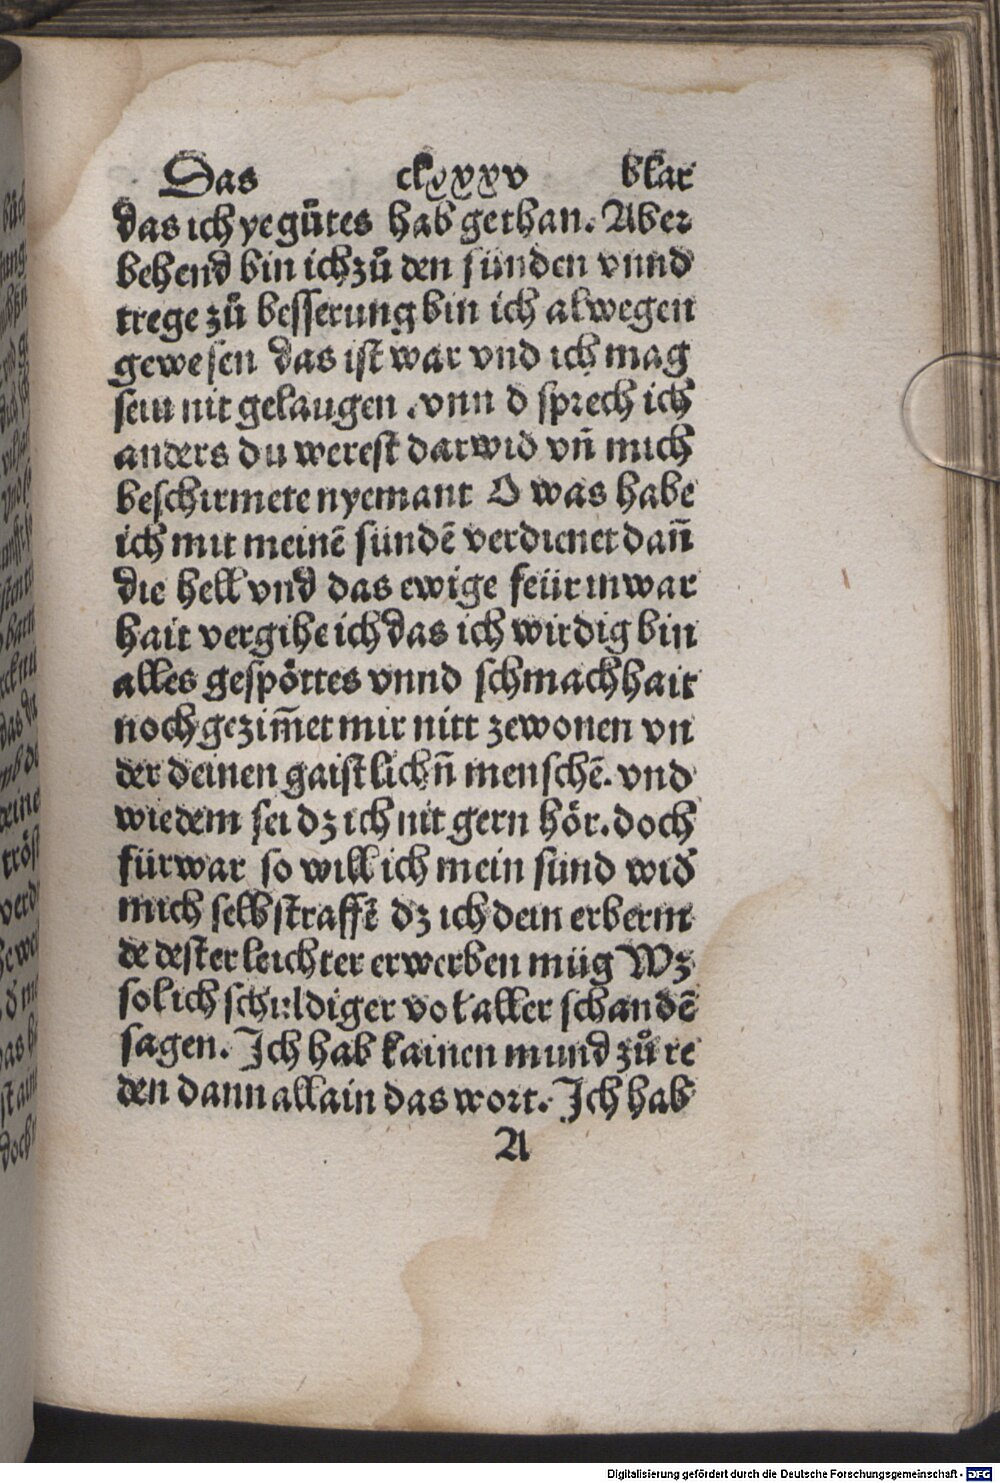 Das clxxxv blat
das ich ye gůtes hab gethan. Aber
behend bin ich zů den sünden vnnd
trege zů besserung bin ich alwegen
gewesen das ist war vnd ich mag
sein nit gelaugen .vnn d sprech ich
anders du werest darwid vñ mich
beschirmete nyemant O was habe
ich mit meinē sündē verdienet dañ
die hell vnd das ewige feür inwar
hait vergihe ich das ich wirdig bin
alles gespöttes vnnd schmachhait
noch gezim̄et mir nitt zewonen vn
der deinen gaistlichñ menschē. vnd
wie dem sei dz ich nit gern hör. doch
fürwar so will ich mein sünd wið
mich selb straffē dz ich dein erberm
de dester leichter erwerben müg Wz
sol ich schuldiger vol aller schandē
sagen. Ich hab kainen mund zů re
den dann allain das wort. Ich hab
A
Digitalisierung gefördert durch die Deutsche Forschungsgemeinschaft - DFG